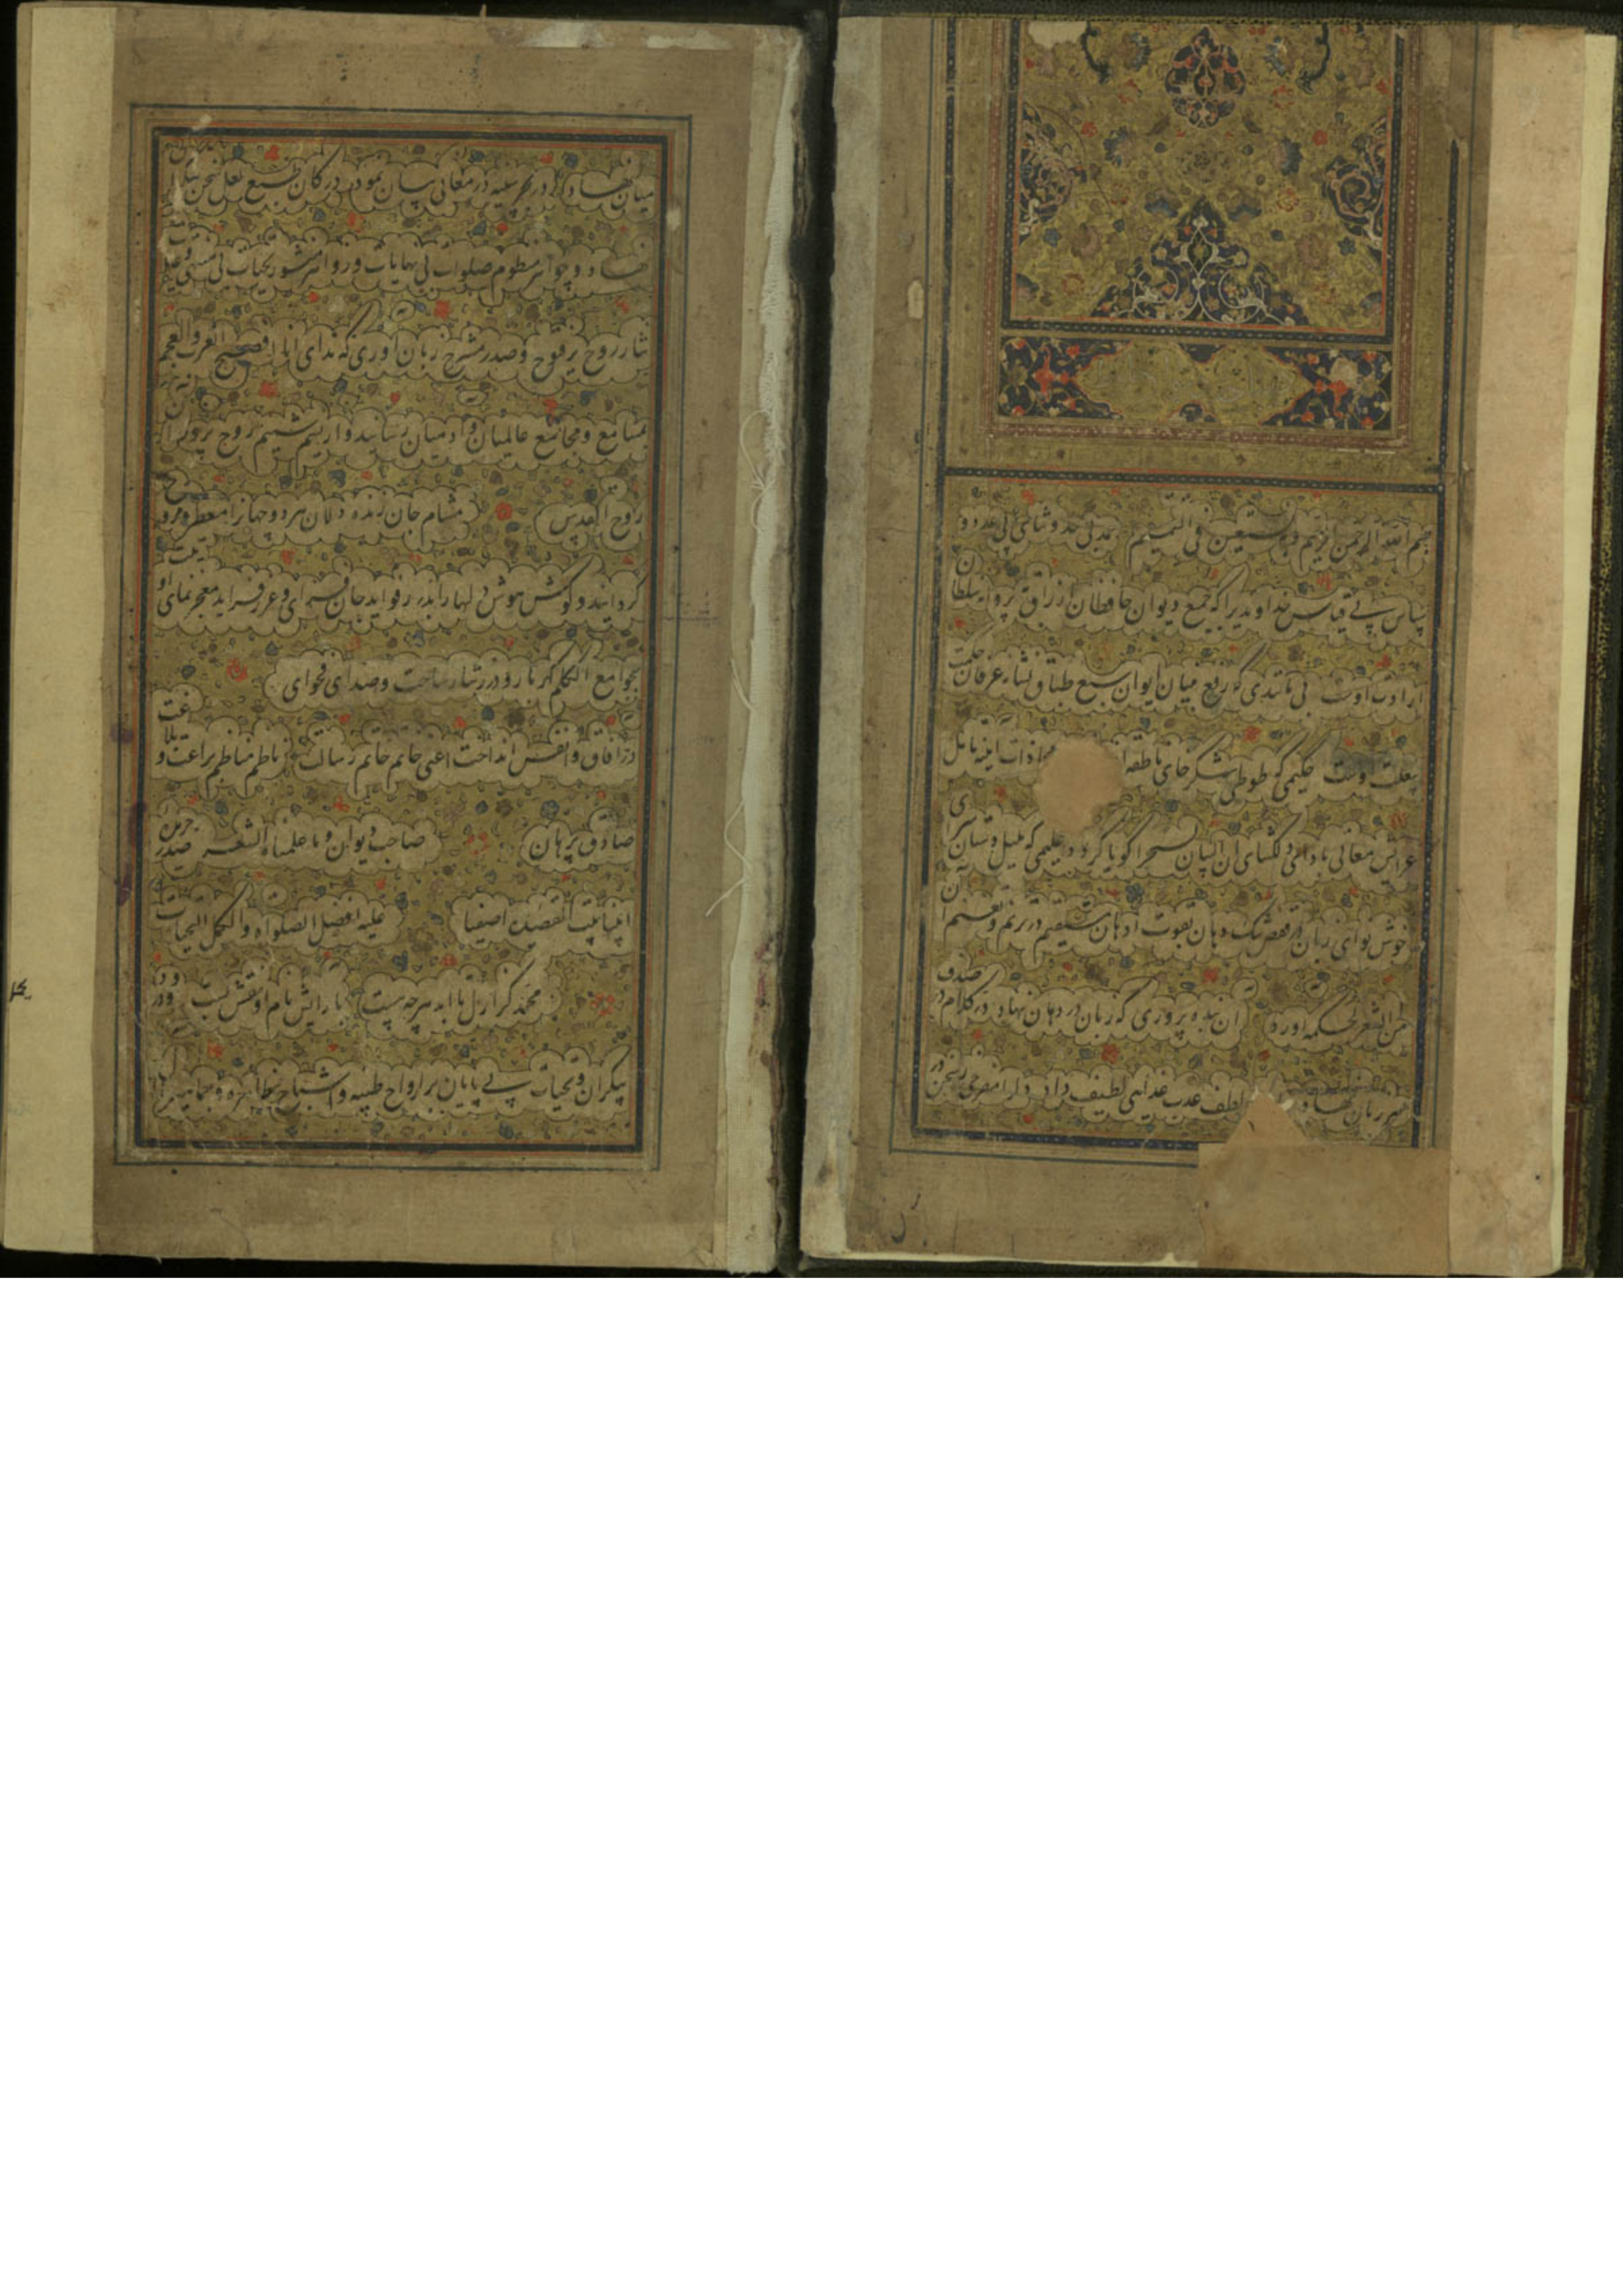 بسم الله الرحمن الرحیم وبه نستعین فی التتمیم حمد بی حد و ثنای بی عدد و
سپاس بی قیاس خداوندیرا که جمع دیوان حافظان ارزاق پروانه سلطان
ارادت اوست بی مانندی که رفع بنیان ایوان سبع طباق نشانه عرفان حکمت
بیعلت اوست حکیمی که طوطی شکرخای ناطقه محاذات آینه تامل
عرایس معانی بادای دلکشای ان من البیان لسحرا گویا کرد علیمی که بلبل دستان سرای
خوش نوای زبان در قفص تنک دهان بقوت اذهان مستقیم در ترنم و تنغم آن
من الشعر لحکمة اورد ان بنده پروری که زبان در دهان نهاد در کلام در صدف
هر زبان نهاد لطف عذب غذایی لطیف داد دلرا مفرحی ز سخن در
میان نهاد در بحر سینه در معانی بیان نمود در کان طبع لعل سخن بیکران
نهاد و جواهر منظوم صلوات بی نهایات و زواهر منثور تحیات بی منتهی و غایات
نثار روح پرفتوح و صدر مشروح زبان آوری که ندای انا افصح العرب والعجم
بمسامع و مجامع عالمیان و ادمیان رسانید و از نسیم شمیم روح پرور ان
روح القدس مشام جان زنده دلان هر دو جهانرا معطر و مروح
کردانید و کوش هوش دلهارا بدرر فواید جان فزای و غرر فراید معجز نمای او
بجوامع الکلم گرانبار و درر نثار ساخت و صدای فحوای
در آفاق و انفس انداخت اعنی خاتم خاتم رسالت ناظم مناظم براعت و بلاغت
صادق برهان صاحب دیوان و ما علمناه الشعر صدر جریده
انبیا بیت القصیده اصفیا علیه افضل الصلوات و اکمل التحیات
محمد کز ازل تا ابد هر چه هست بارایش نام او نقش بست و درود
بیکران و تحیات بی پایان بر ارواح طیبه و اشباح طاهره و جماهیر